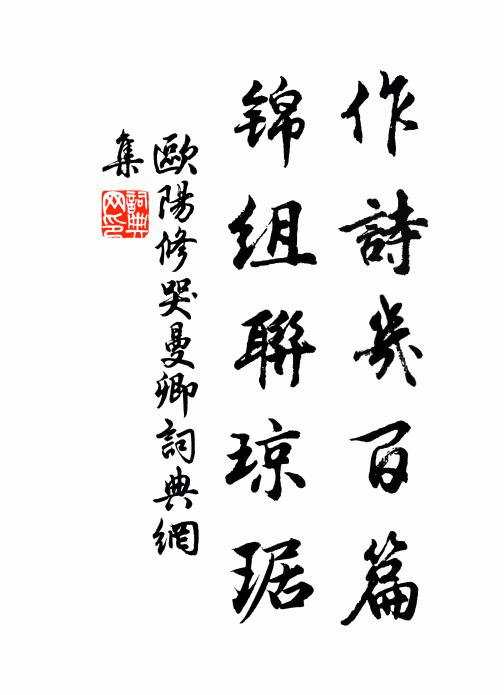 作詩幾百篇
锦组聯琼琚
歐陽修哭曼卿詞典網
集
詞典网印